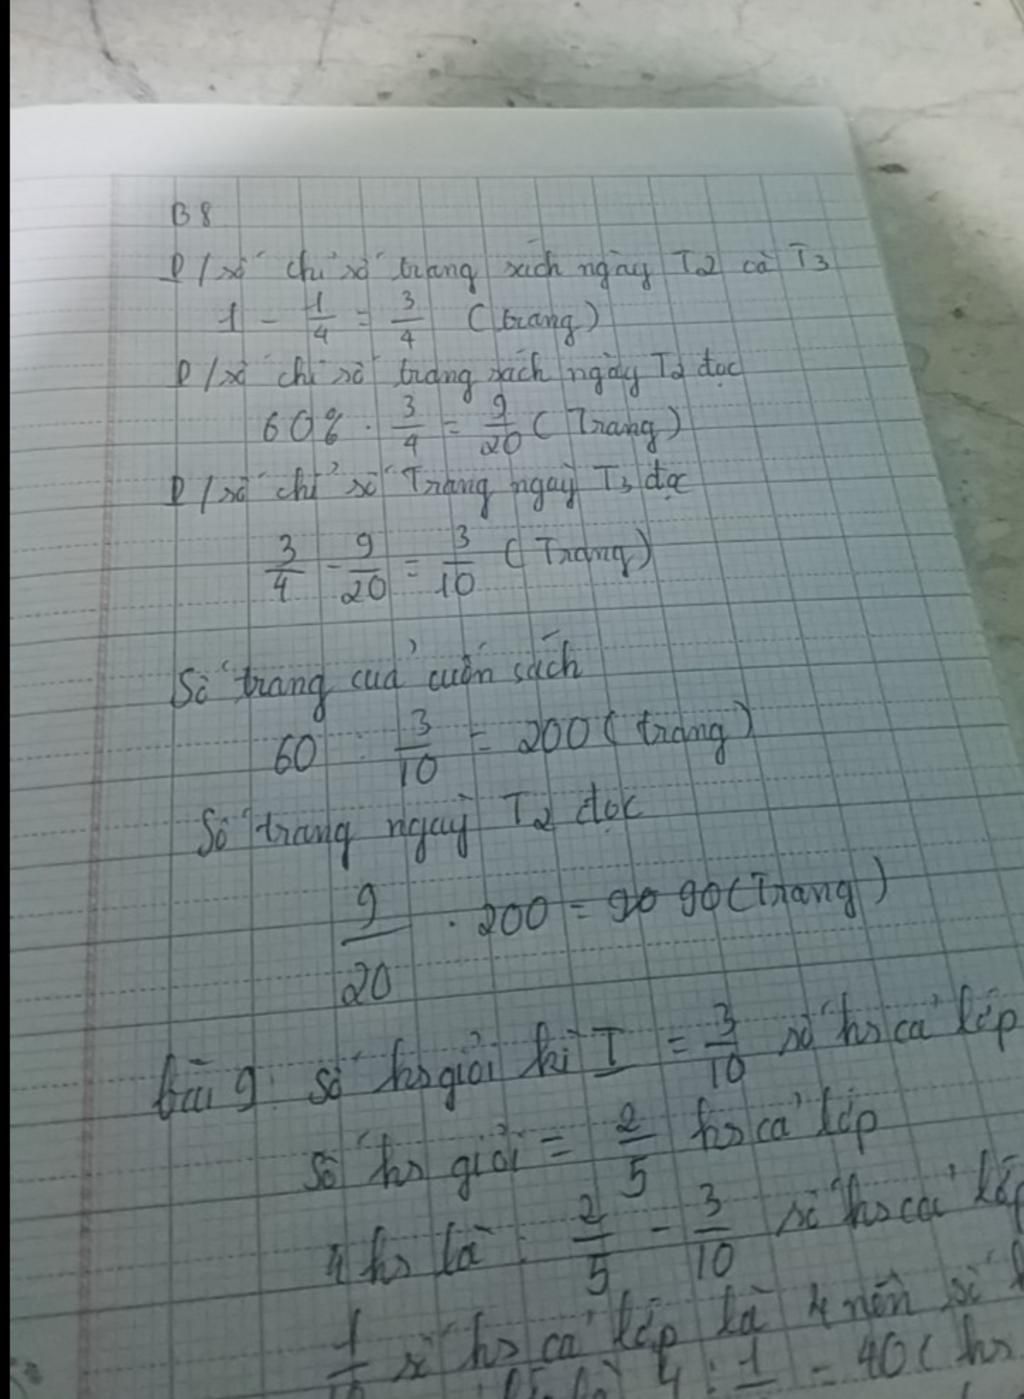 B8
P/số chỉ số trang sách ngày T2 cà T3
1 - 1/4 = 3/4 (trang)
P/số chỉ số trang sách ngày T2 đọc
60% . 3/4 = 9/20 (Trang)
P/số chỉ số Trang ngày T3 đọc
3/4 - 9/20 = 3/10 (Trang)
Số trang của cuốn sách
60 : 3/10 = 200 (trang)
Số trang ngày T2 đọc
9/20 . 200 = 90 90 (Trang)
bài 9: số hs giỏi kì I = 3/10 số hs cả lớp
số hs giỏi = 2/5 hs cả lớp
4 hs là : 2/5 - 3/10 số hs cả lớp
1/10 số hs cả lớp là 4 nên số
4 : 1 = 40 (hs